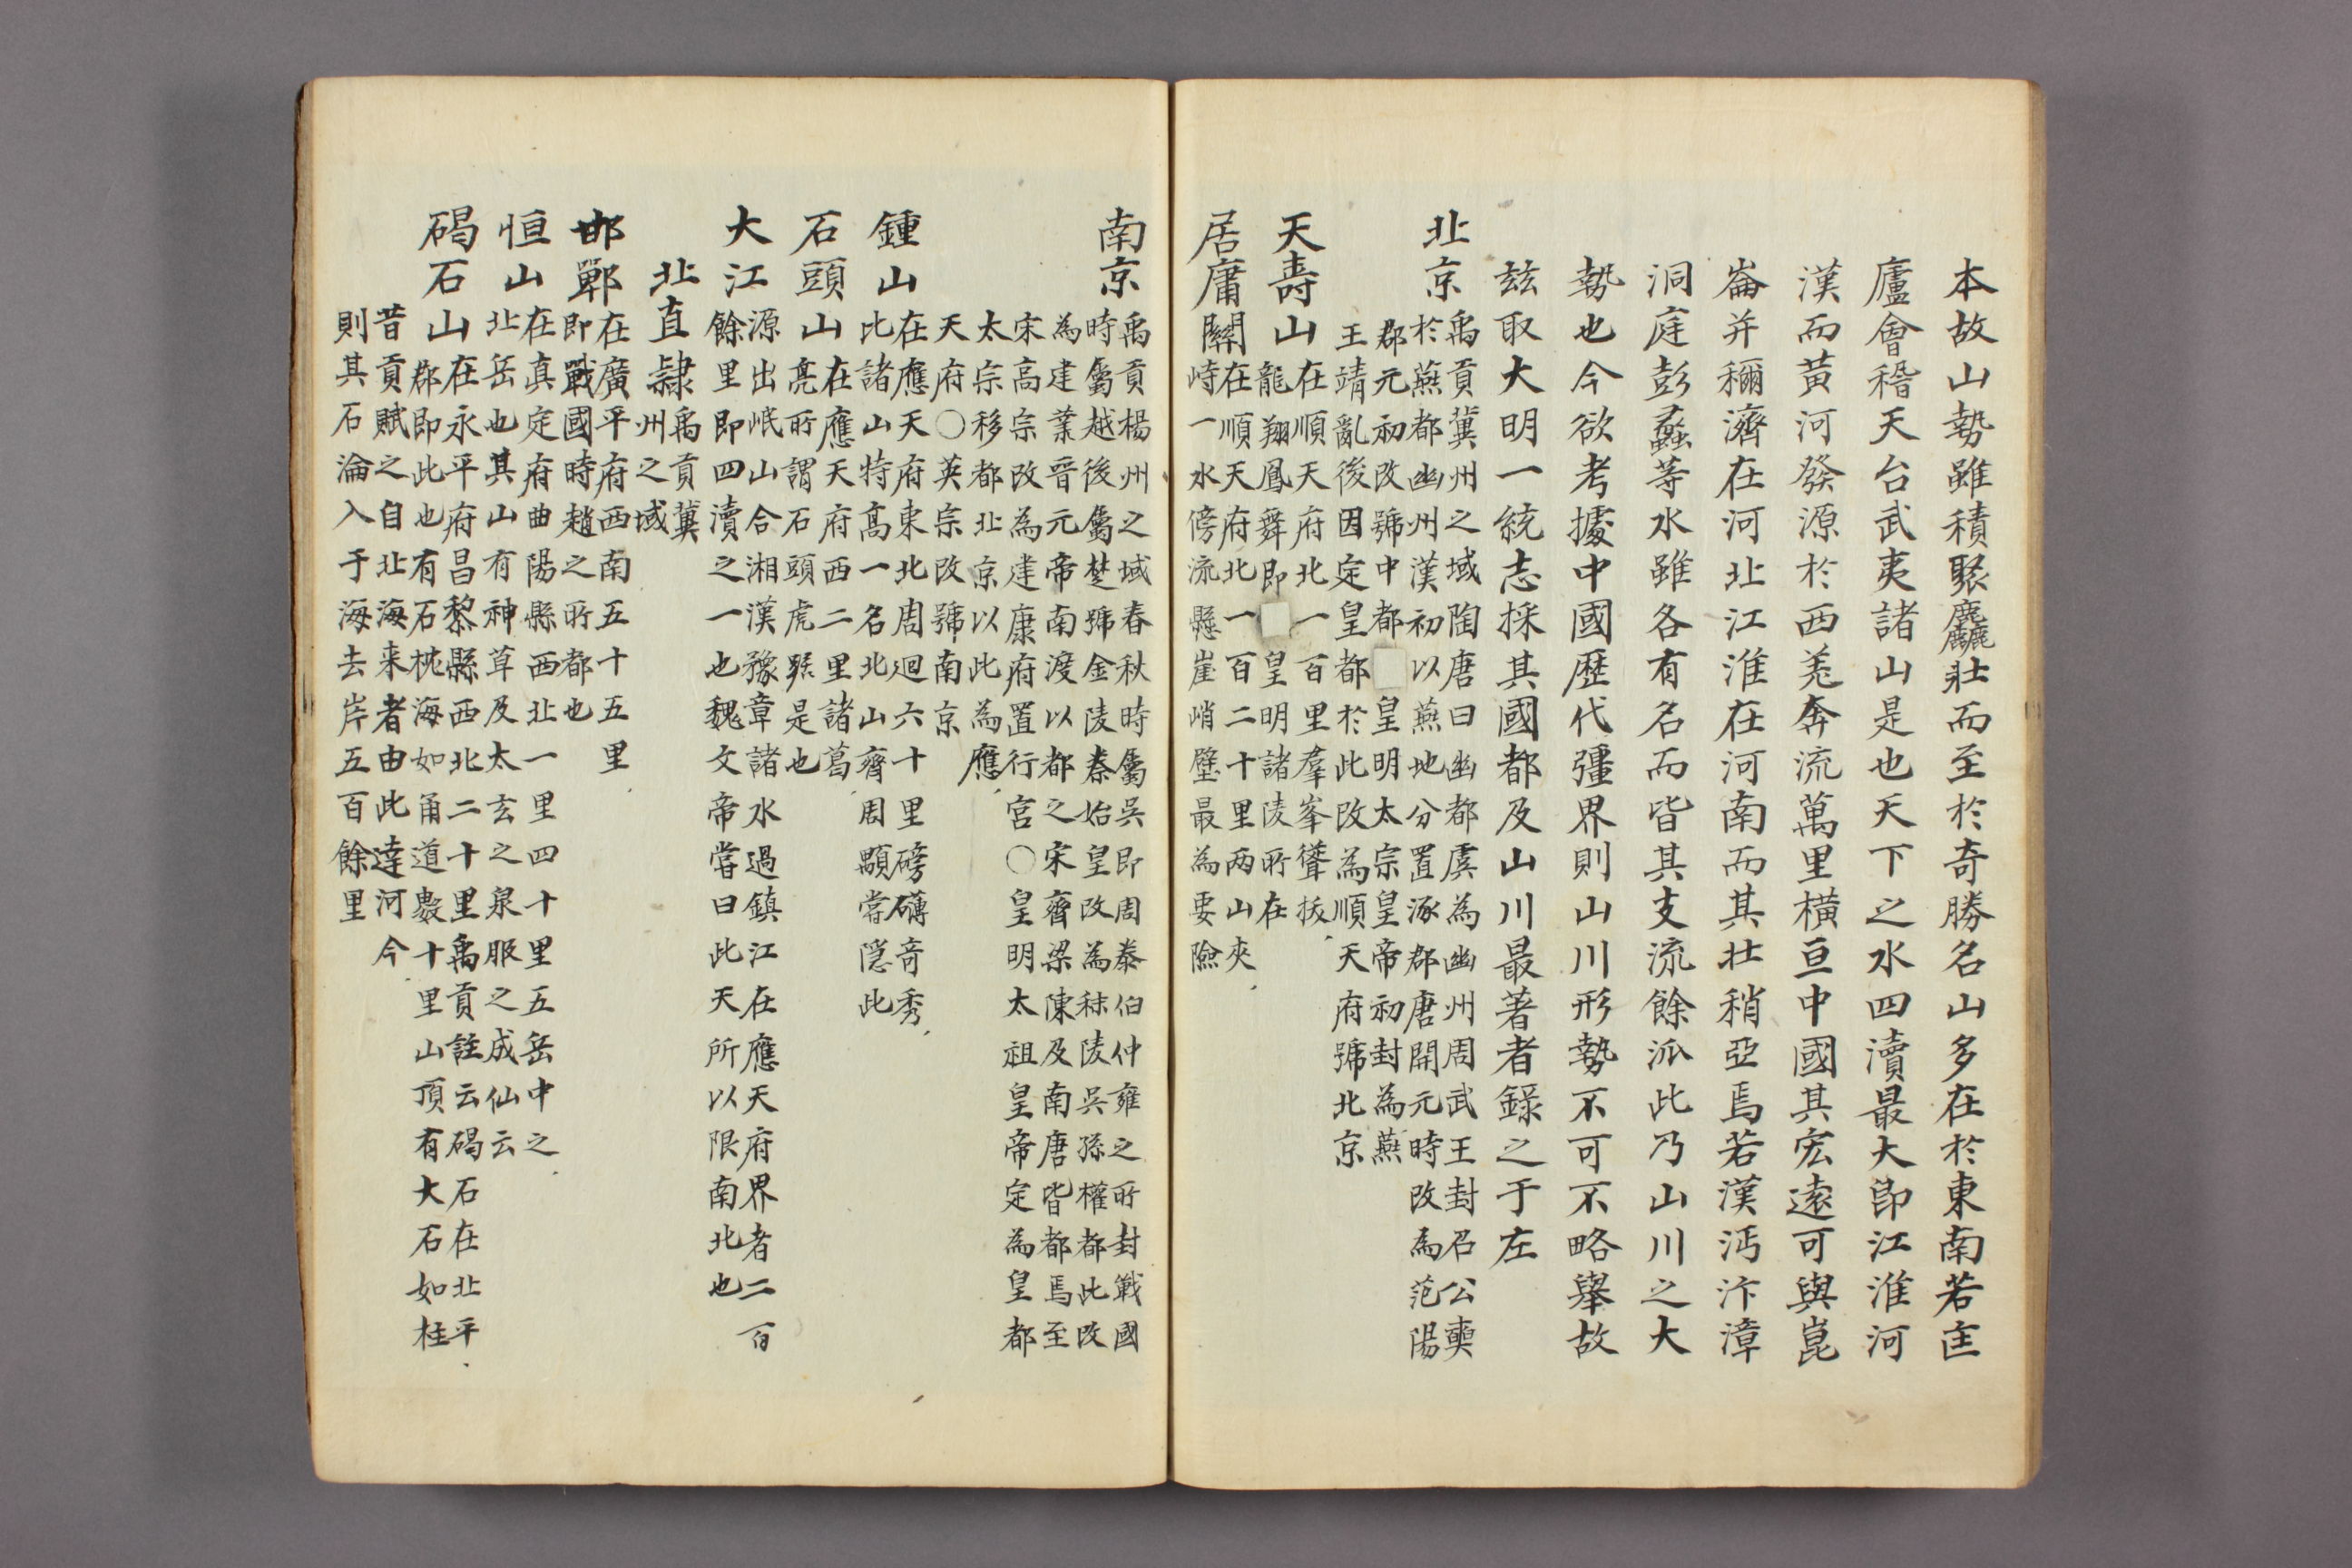 本故山勢雖積聚麤壯而至於奇勝名山多在於東南若匡
廬會稽天台武夷諸山是也天下之水四瀆最大卽江淮河
漢而黃河發源於西羌奔流萬里橫亘中國其宏遠可與崑
崙并稱濟在河北江淮在河南而其壯稍亞焉若漢沔汴漳
洞庭彭蠡等水雖各有名而皆其支流餘派此乃山川之大
勢也今欲考據中國歷代疆界則山川形勢不可不略擧故
玆取大明一統志採其國都及山川最著者錄之于左
北京
禹貢冀州之域陶唐曰幽都虞為幽州周武王封召公奭
於燕都幽州漢初以燕地分置涿郡唐開元時改為范陽
郡元初改號中都 皇明太宗皇帝初封為燕
王靖亂後因定皇都於此改為順天府號北京
天壽山
在順天府北一百里羣峯聳拔
龍翔鳳舞即 皇明諸陵所在
居庸關
在順天府北一百二十里两山夾
峙一水傍流懸崖峭壁最為要險
南京
禹貢楊州之域春秋時屬吳即周泰伯仲雍之所封戰國
時屬越後屬楚號金陵秦始皇改為秣陵吳孫權都此改
為建業晉元帝南渡以都之宋齊梁陳及南唐皆都焉至
宋高宗改為建康府置行宮○皇明太祖皇帝定為皇都
太宗移都北京以此為應
天府○英宗改號南京
鍾山
在應天府東北周迴六十里磅礴竒秀
此諸山特高一名北山齊周顒嘗隱此
石頭山
在應天府西二里諸葛
亮所謂石頭虎踞是也
大江
源出岷山合湘漢豫章諸水過鎮江在應天府界者二百
餘里即四瀆之一也魏文帝嘗曰此天所以限南北也
北直隸
禹貢冀
州之域
邯鄲
在廣平府西南五十五里
即戰國時趙之所都也
恒山
在真定府曲陽縣西北一里四十里五岳中之
北岳也其山有神草及太玄之泉服之成仙云
碣石山
在永平府昌黎縣西北二十里禹貢註云碣石在北平
郡即此也有石枕海如甬道數十里山頂有大石如柱
昔貢賦之自北海来者由此達河今
則其石淪入于海去岸五百餘里